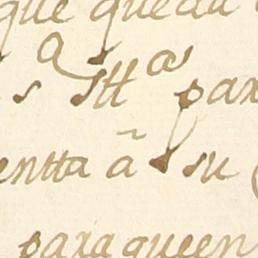 que queda
s Stt.as par
entta ã su
paraqueen